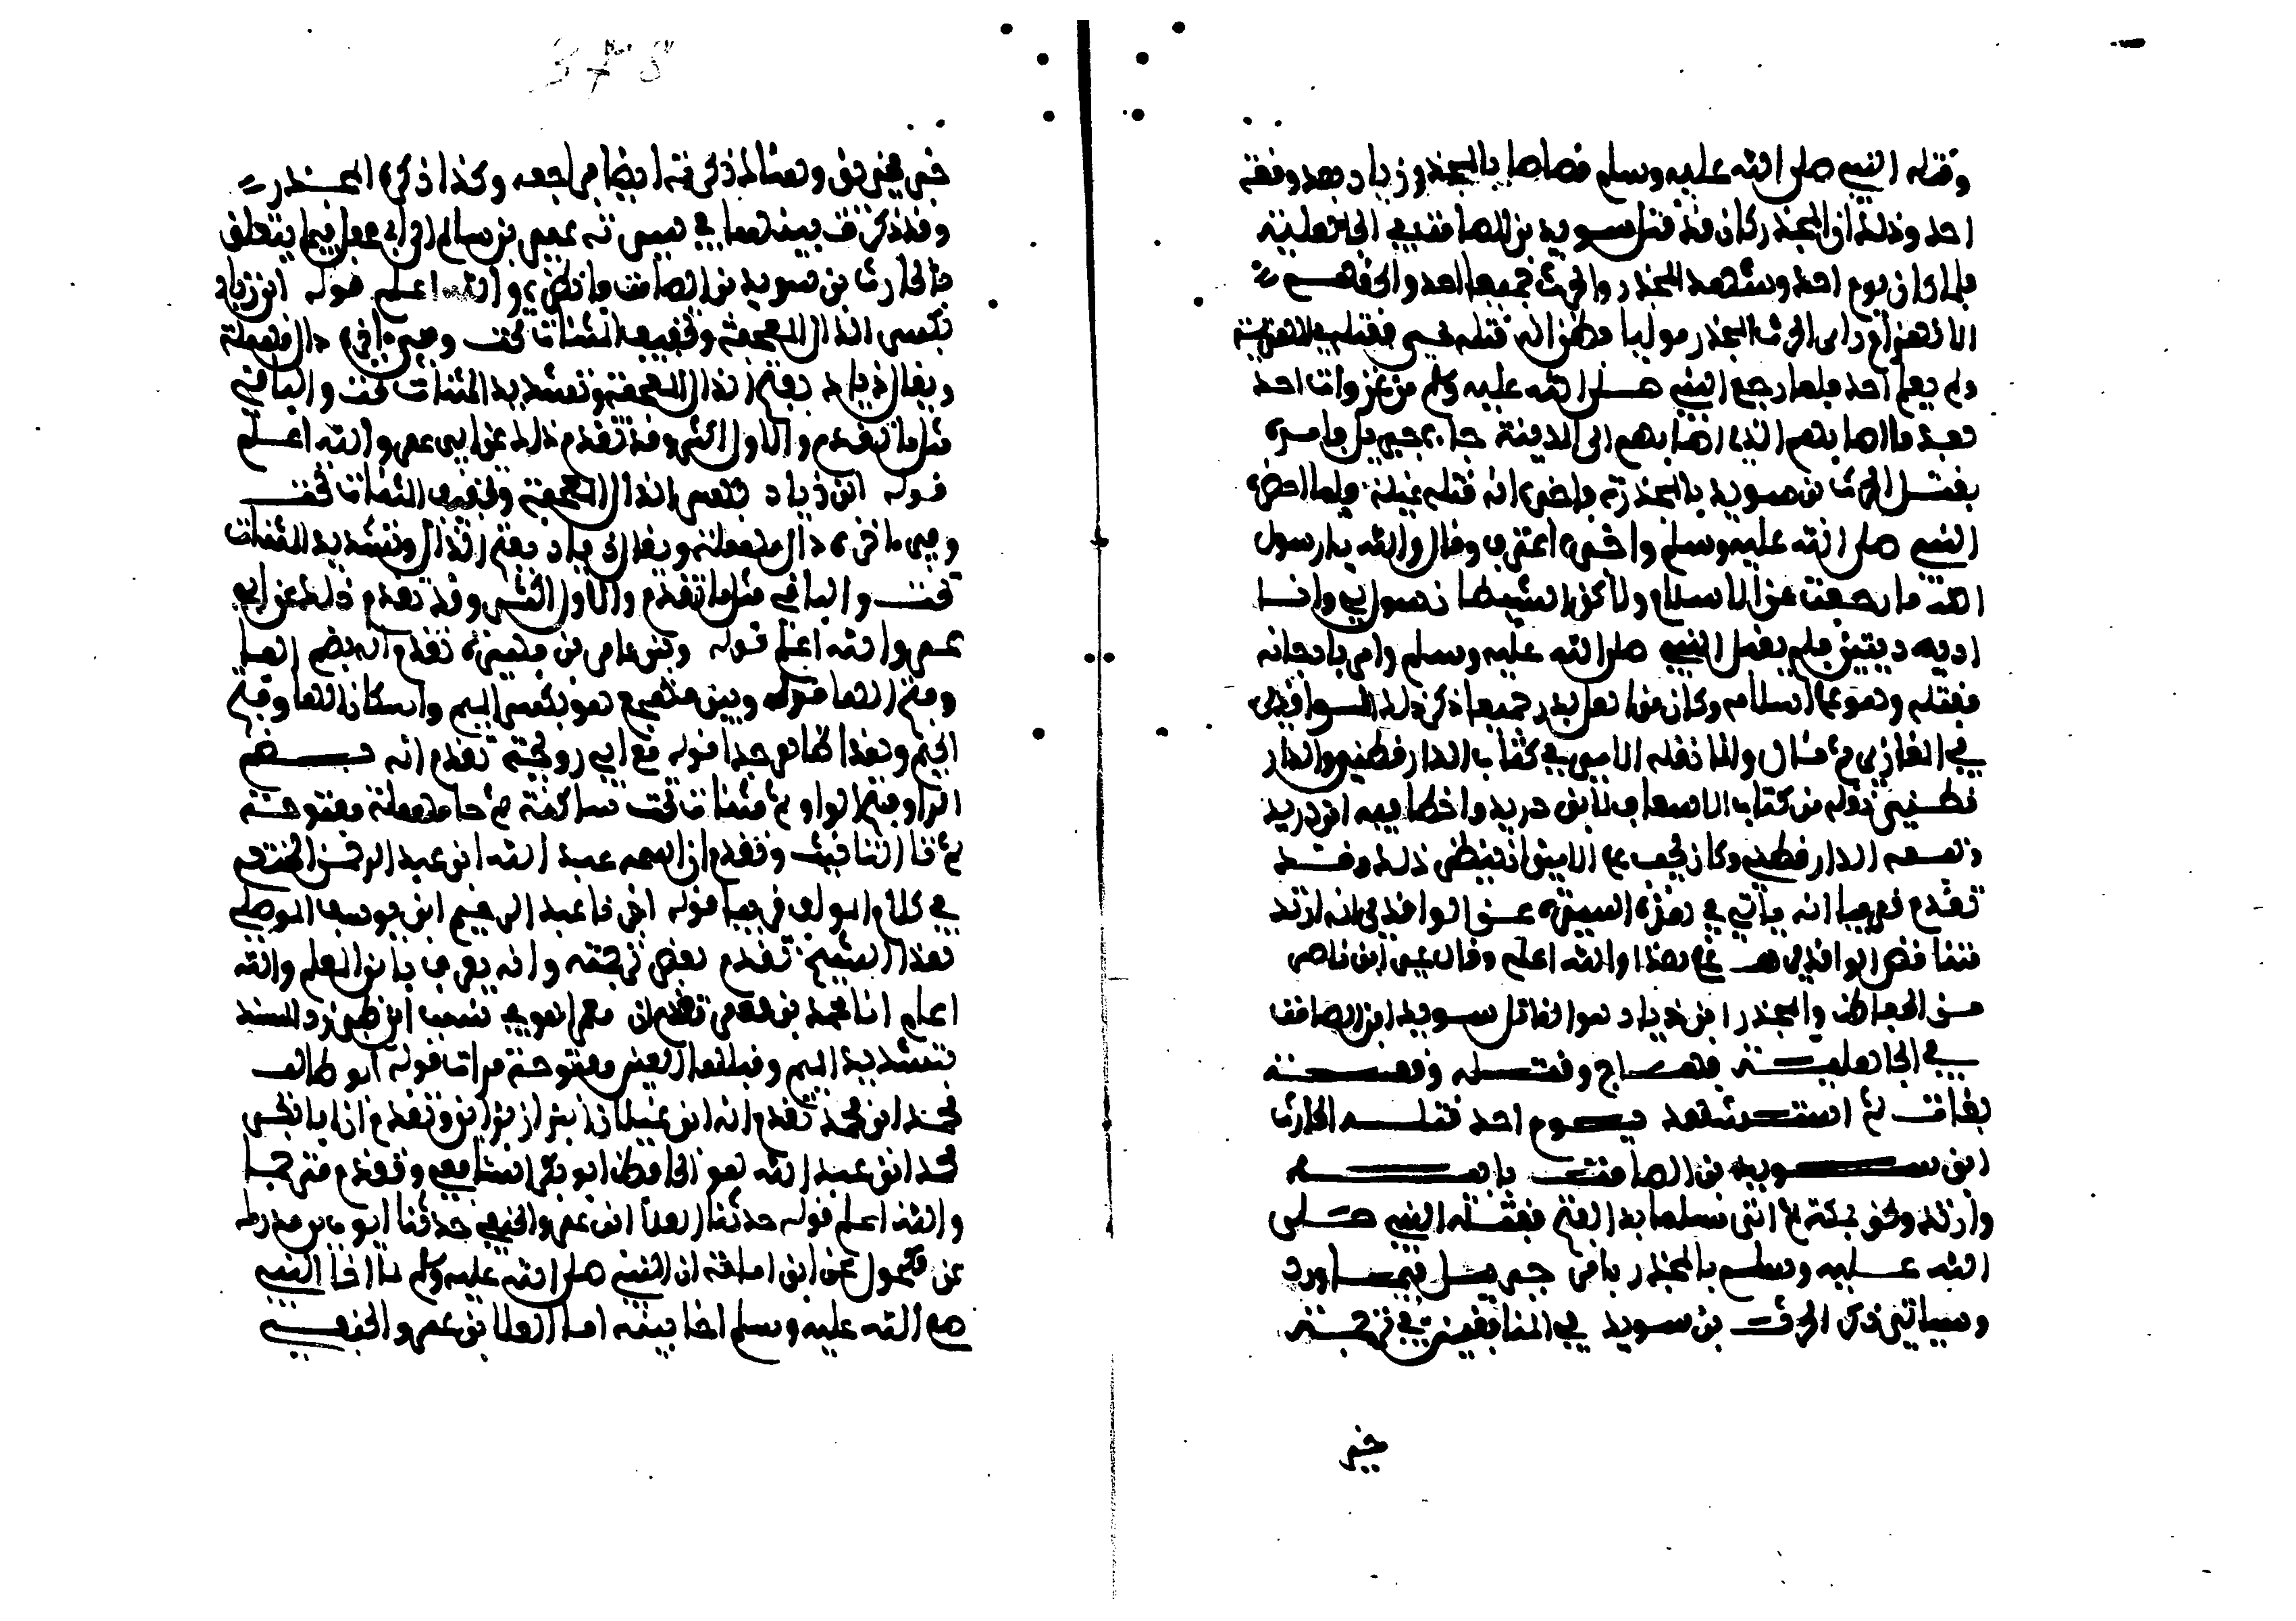 وقتله النبي صلى الله عليه وسلم قصاصا بالمجذر زياد بعد وقعة
احد وذلك ان المجذر كان قد قتل سويد بن الصامت في الجاهلية
فلما كان يوم احد وشهد المجذر والحرث جميعا احد والتقى
الا انهزام راى الحرث المجذر موليا فقتله غيلة
ولم يعلم احد فلما رجع النبي صلى الله عليه وسلم من غزوات احد
بعد ما اصابهم الذي اصابهم الى المدينة جاء جبريل فامره
بقتل الحرث بن سويد بالمجذر واخبره انه قتله غيلة فلما احضره
النبي صلى الله عليه وسلم واخبره اعترف وقال والله يا رسول
الله ما رجعت عن الاسلام ولاكن الشيطان سول لي وانا
اديه ديتين فلم يقبل النبي صلى الله عليه وسلم وامر به
فقتله وهو على اسلامه وكان من اهل بدر جميعا ذكر ذلك الواقدي
في المغازي ثم قال وانما نقله الامير في كتاب الدارقطني والدار
قطني نقله من كتاب الاسعاف لابن دريد واخطا فيه ابن دريد
وتبعه الدارقطني وكان يجب على الامير ان ينظر ذلك وقد
تقدم قريبا انه ياتي في هذه السيرة عن الواقدي انه ارتد
فتناقض الواقدي مع هذا والله اعلم وقال ابن ناصر
من الحفاظ والمجذر ابن ذياد هو القاتل سويد ابن الصامت
في الجاهلية فهاج وقتله وقعة
بعاث ثم استشهد يوم احد قتله الحارث
ابن سويد بن الصامت بابيه
وارتد ولحق بمكة ثم اتى مسلما بعد الفتح فقتله النبي صلى
الله عليه وسلم بالمجذر بامر جبريل فيما ورد
وسياتي ذكر الحرث بن سويد في المنافقين في ترجمته
خبر
378
خبر مخيريق وهنا لم اذكر فيه ايضا مراجعه وكذا ذكره المجذر
وقد ذكرت بينهما في سيرته عمير بن سالم فيما يتعلق
بالحارث بن سويد بن الصامت فانظره والله اعلم قوله ابن ذياد
بكسر الذال المعجمة وتخفيف المثناة تحت وفي اخره دال مهملة
ويقال ذياد بفتح الذال المعجمة وتشديد المثناة تحت والباقي
مثل ما تقدم والاول اكثر وقد تقدم ذلك عن ابي عمر والله اعلم
قوله ابن ذياد بكسر الذال المعجمة وتخفيف المثناة تحت
وفي اخره دال مهملة ويقال ذياد بفتح الذال وتشديد المثناة
تحت والباقي مثل ما تقدم والاول اكثر وقد تقدم ذلك عن ابي
عمر والله اعلم قوله وبن عامر بن فهيرة تقدم انه بضم الفا
وفتح الها قوله وبين مهجع هو بكسر الميم واسكان الها وفتح
الجيم وهذا ظاهر جدا قوله مع ابي رويحة تقدم انه بضم
الرا وفتح الواو ثم مثناة تحت ساكنة ثم حا مهملة مفتوحة
ثم تا التانيث وتقدم ان اسمه عبد الله ابن عبد الرحمن الخثعمي
في كلام المولف قريبا قوله اخبرنا عبد الرحيم ابن يوسف الموصلي
هذا الشيخ تقدم بعض ترجمته وانه يعرف بابن المعلم والله
اعلم انا محمد بن معمر تقدم ان معمر ابن طبرزد المسند
بتشديد الميم وقبلها العين مفتوحة مرات قوله ابو طالب
محمد ابن محمد تقدم انه ابن غيلان البزاز بزاين وتقدم ان ابا بكر
محمد ابن عبد الله هو الحافظ ابو بكر الشافعي وتقدم مترجما
والله اعلم قوله حدثنا العلا ابن عمرو الحنفي حدثنا ايوب بن مدرك
عن مكحول عن ابي امامة ان النبي صلى الله عليه وسلم لما اخا النبي
صلى الله عليه وسلم اخا بينه اما العلا بن عمرو الحنفي